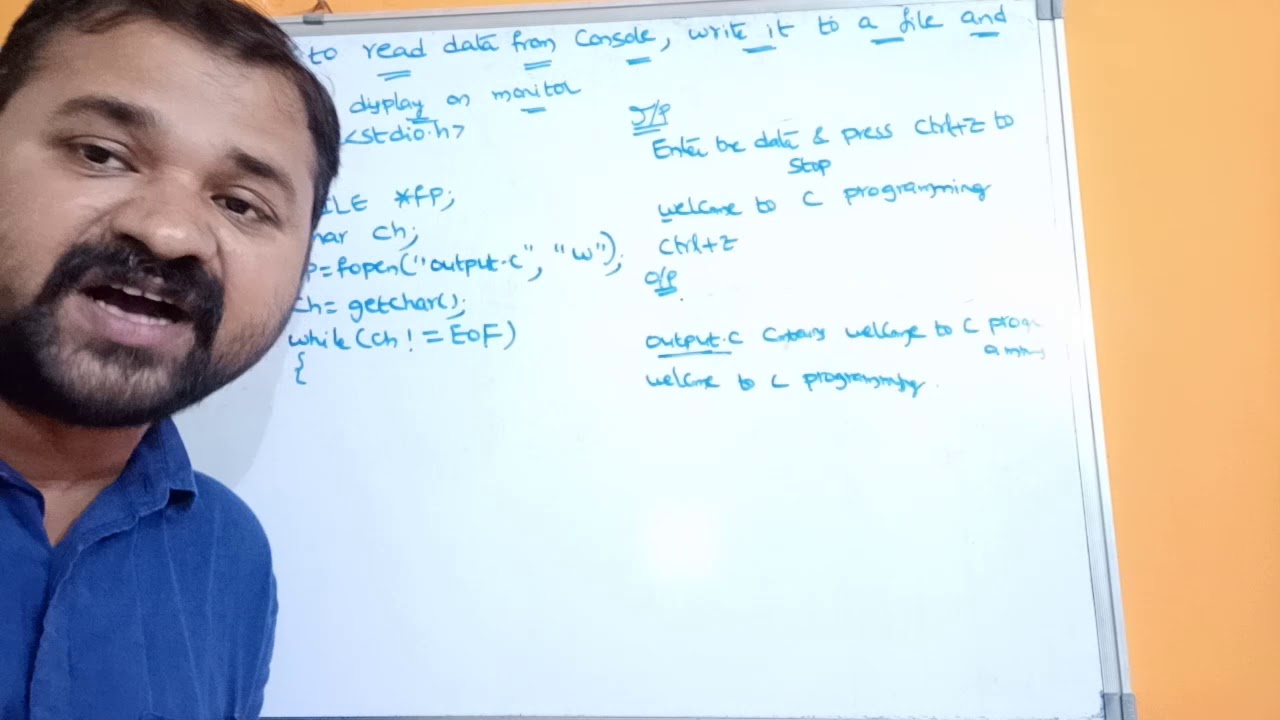 to read data from Console, write it to a file and
display on monitor
<stdio.h>
ILE *fp;
har ch;
p=fopen("output.c", "w");
ch= getchar();
while(ch != EOF)
{
I/P
Enter the data & press Ctrl+Z to
Stop
welcome to C programming
Ctrl+Z
O/P
output.C Contains welcome to C progr
amming
welcome to C programming.